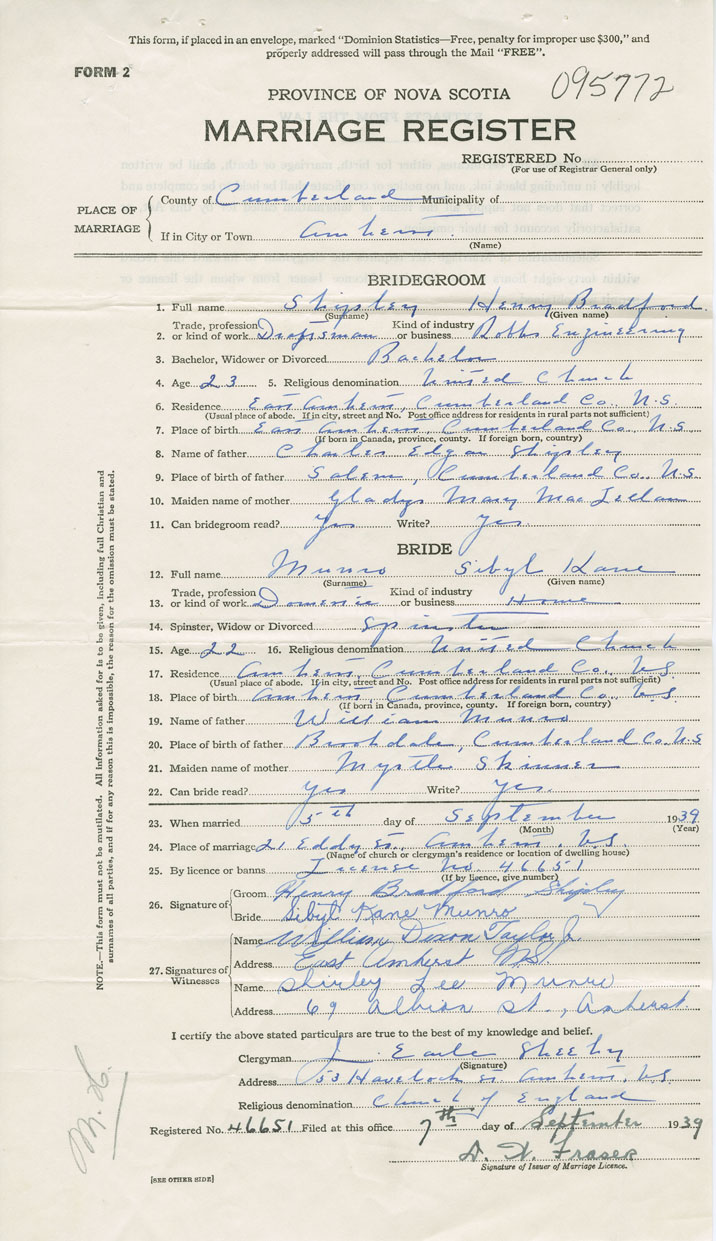 This form, if placed in an envelope, marked "Dominion Statistics—Free, penalty for improper use $300," and
properly addressed will pass through the Mail "FREE".
FORM 2
095772
PROVINCE OF NOVA SCOTIA
MARRIAGE REGISTER
REGISTERED No
(For use of Registrar General only)
PLACE OF MARRIAGE
County of Cumberland Municipality of
If in City or Town Amherst
(Name)
BRIDEGROOM
1. Full name Shipley Henry Bradford
(Surname) (Given name)
Trade, profession Kind of industry
2. or kind of work Draftsman or business Robbs Engineering
3. Bachelor, Widower or Divorced Bachelor
4. Age 23 5. Religious denomination United Church
6. Residence East Amherst, Cumberland Co., N.S.
(Usual place of abode. If in city, street and No. Post office address for residents in rural parts not sufficient)
7. Place of birth East Amherst, Cumberland Co., N.S.
(If born in Canada, province, county. If foreign born, country)
8. Name of father Charles Edgar Shipley
9. Place of birth of father Salem, Cumberland Co., N.S
10. Maiden name of mother Gladys Mary MacLellan
11. Can bridegroom read? Yes Write? yes
BRIDE
12. Full name Munro Sibyl Kane
(Surname) (Given name)
Trade, profession Kind of industry
13. or kind of work Domestic or business Home
14. Spinster, Widow or Divorced Spinster
15. Age 22 16. Religious denomination United Church
17. Residence Amherst, Cumberland Co., N.S
(Usual place of abode. If in city, street and No. Post office address for residents in rural parts not sufficient)
18. Place of birth Amherst, Cumberland Co., N.S.
(If born in Canada, province, county. If foreign born, country)
19. Name of father William Munro
20. Place of birth of father Brookdale, Cumberland Co. N.S
21. Maiden name of mother Myrtle Skinner
22. Can bride read? yes Write? yes.
23. When married 5th day of September 1939
(Month) (Year)
24. Place of marriage 21 Eddy St., Amherst, N.S.
(Name of church or clergyman's residence or location of dwelling house)
25. By licence or banns License No. 46651
(If by licence, give number)
26. Signature of
Groom Henry Bradford Shipley
Bride Sibyl Kane Munro
27. Signatures of Witnesses
Name William Dixon Taylor Jr
Address East Amherst N.S.
Name Shirley Lee Munro
Address 69 Albion St., Amherst
I certify the above stated particulars are true to the best of my knowledge and belief.
Clergyman J. Earle Sheehy
(Signature)
Address 53 Havelock St Amherst, N.S
Religious denomination Church of England
Registered No. 46651 Filed at this office 7th day of September 1939
Signature of Issuer of Marriage Licence.
D. W. Fraser
[SEE OTHER SIDE]
NOTE.—This form must not be mutilated. All information asked for is to be given, including full Christian and
surnames of all parties, and if for any reason this is impossible, the reason for the omission must be stated.